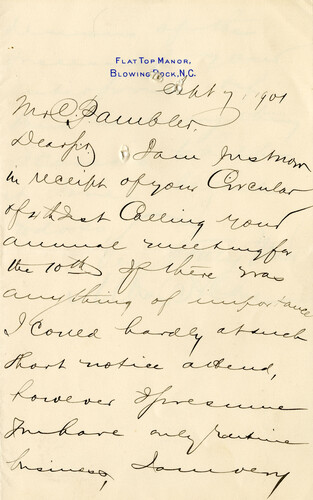 FLAT TOP MANOR,
BLOWING ROCK, N.C.
Sept 7, 1901
Mr C. Lambler.
Dear Sir I am Just Now
in receipt of your Circular
of 4th Inst Calling your
annual meeting for
the 10th If there was
anything of importance
I could hardly at such
short notice attend,
however I presume
you have only routine
business, I am very